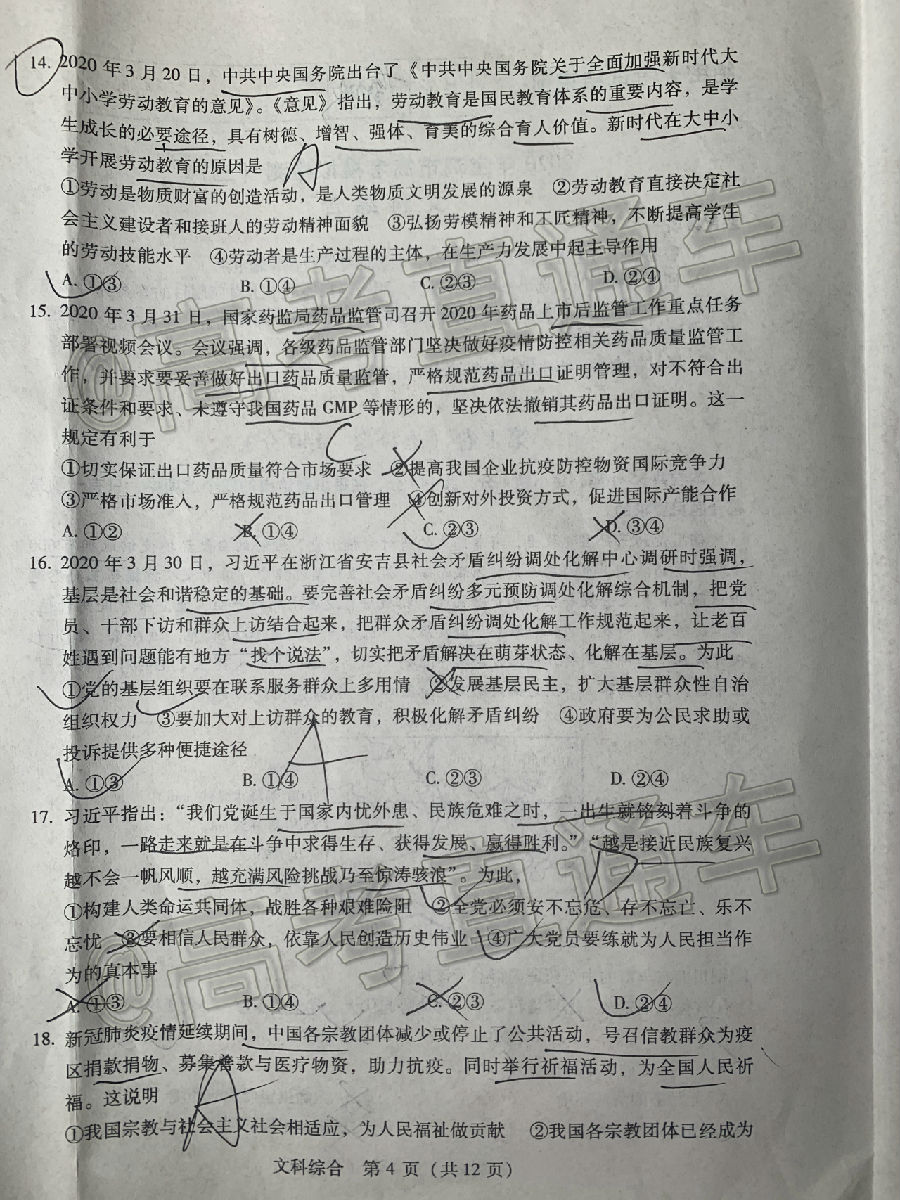 14. 2020年3月20日，中共中央国务院出台了《中共中央国务院关于全面加强新时代大
中小学劳动教育的意见》。《意见》指出，劳动教育是国民教育体系的重要内容，是学
生成长的必要途径，具有树德、增智、强体、育美的综合育人价值。新时代在大中小
学开展劳动教育的原因是
A
①劳动是物质财富的创造活动，是人类物质文明发展的源泉 ②劳动教育直接决定社
会主义建设者和接班人的劳动精神面貌 ③弘扬劳模精神和工匠精神，不断提高学生
的劳动技能水平 ④劳动者是生产过程的主体，在生产力发展中起主导作用
A. ①③ B. ①④ C. ②③ D. ②④
15. 2020年3月31日，国家药监局药品监管司召开2020年药品上市后监管工作重点任务
部署视频会议。会议强调，各级药品监管部门坚决做好疫情防控相关药品质量监管工
作，并要求要妥善做好出口药品质量监管，严格规范药品出口证明管理，对不符合出
证条件和要求、未遵守我国药品GMP等情形的，坚决依法撤销其药品出口证明。这一
规定有利于
C
①切实保证出口药品质量符合市场要求 ②提高我国企业抗疫防控物资国际竞争力
③严格市场准入，严格规范药品出口管理 ④创新对外投资方式，促进国际产能合作
A. ①② B. ①④ C. ②③ D. ③④
16. 2020年3月30日，习近平在浙江省安吉县社会矛盾纠纷调处化解中心调研时强调，
基层是社会和谐稳定的基础。要完善社会矛盾纠纷多元预防调处化解综合机制，把党
员、干部下访和群众上访结合起来，把群众矛盾纠纷调处化解工作规范起来，让老百
姓遇到问题能有地方“找个说法”，切实把矛盾解决在萌芽状态、化解在基层。为此
①党的基层组织要在联系服务群众上多用情 ②发展基层民主，扩大基层群众性自治
组织权力 ③要加大对上访群众的教育，积极化解矛盾纠纷 ④政府要为公民求助或
投诉提供多种便捷途径
A
A. ①③ B. ①④ C. ②③ D. ②④
17. 习近平指出：“我们党诞生于国家内忧外患、民族危难之时，一出生就铭刻着斗争的
烙印，一路走来就是在斗争中求得生存、获得发展、赢得胜利。”“越是接近民族复兴
越不会一帆风顺，越充满风险挑战乃至惊涛骇浪”。为此，
D
①构建人类命运共同体，战胜各种艰难险阻 ②全党必须安不忘危、存不忘亡、乐不
忘忧 ③要相信人民群众，依靠人民创造历史伟业 ④广大党员要练就为人民担当作
为的真本事
A. ①③ B. ①④ C. ②③ D. ②④
18. 新冠肺炎疫情延续期间，中国各宗教团体减少或停止了公共活动，号召信教群众为疫
区捐款捐物、募集善款与医疗物资，助力抗疫。同时举行祈福活动，为全国人民祈
福。这说明
A
①我国宗教与社会主义社会相适应，为人民福祉做贡献 ②我国各宗教团体已经成为
文科综合 第4页（共12页）
@高考直通车
@高考直通车